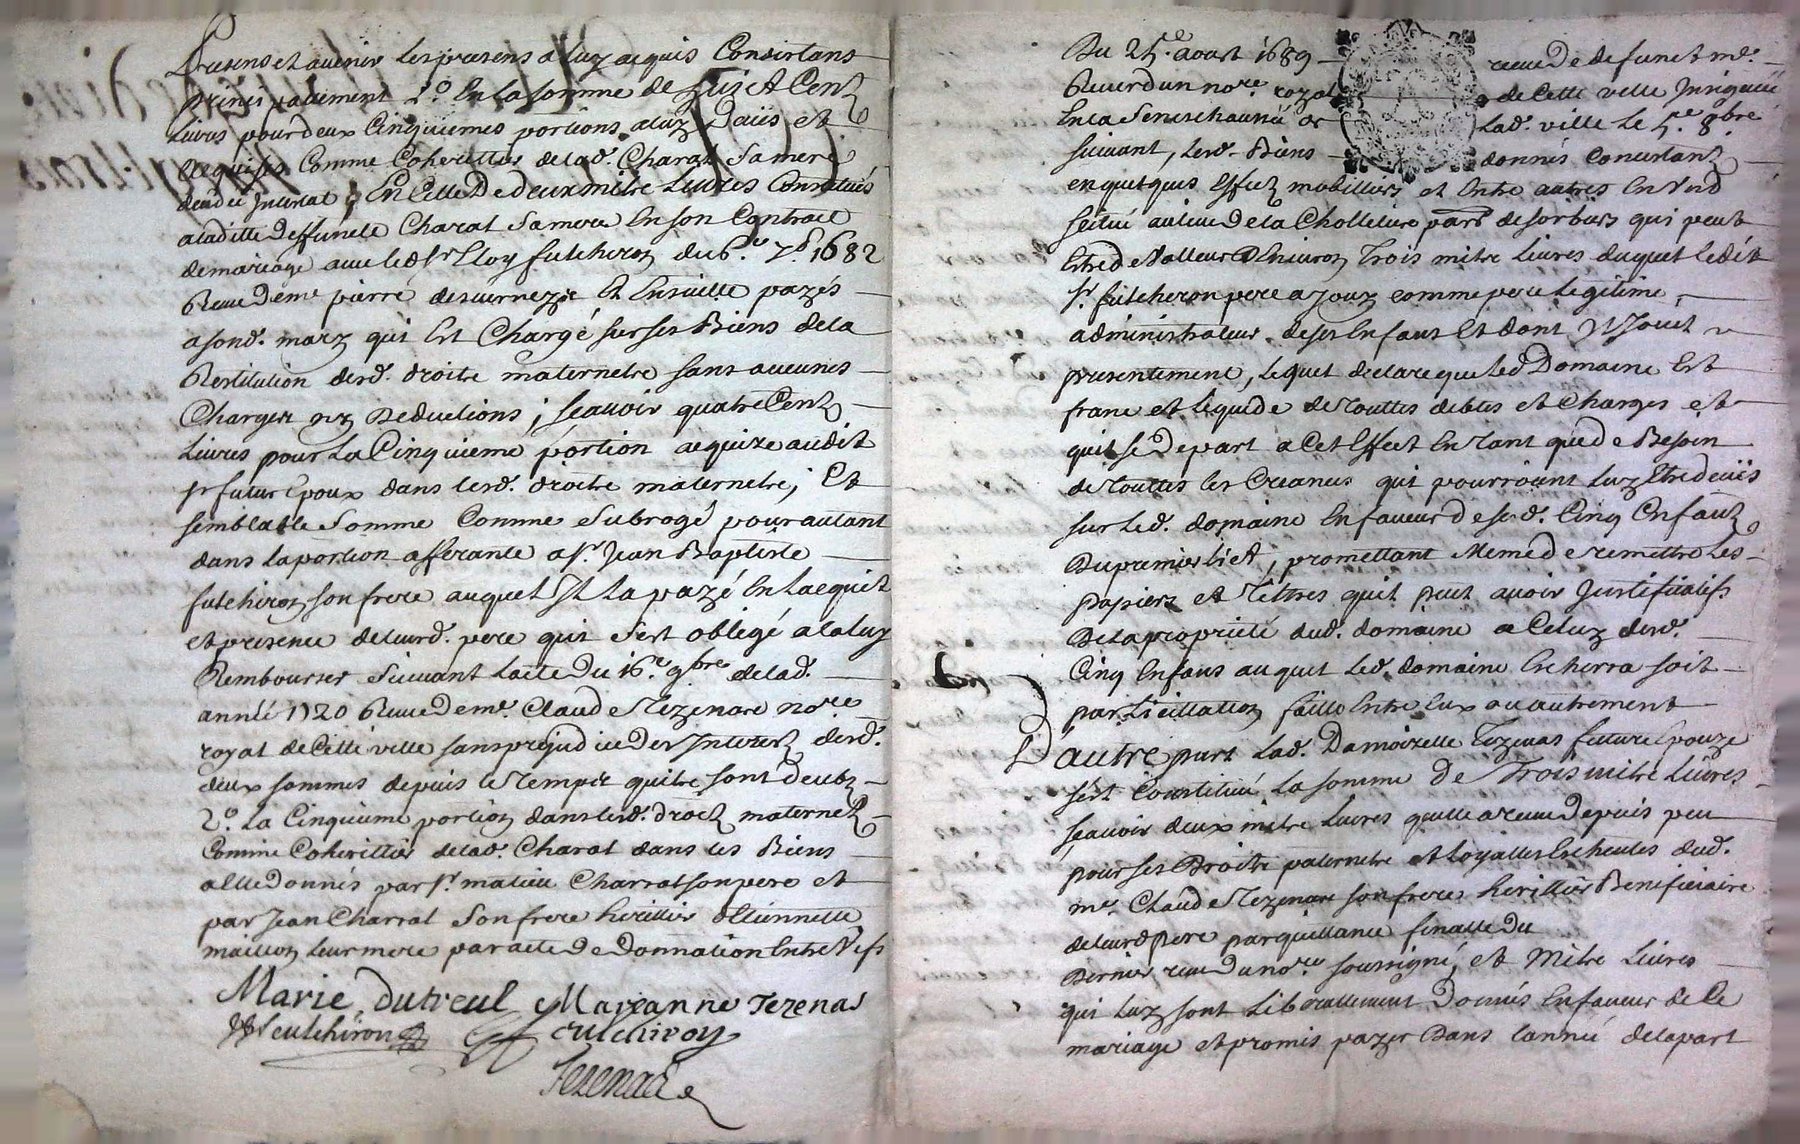 Presens et avenir les presens a luy acquis Consistans
principallement 1.o En la somme de huit Cent
Livres pour deux Cinquiemes portions a luy Daüs et
acquises Comme Coherittier de lad. Charat Sa mere
En Celle De deux mille Livres Constitués
a laditte deffuncte Charat Sa mere En son Contract
de mariage avec led. Sr Eloy futcheron du 6.e 7.b 1682
Receu De me. pierre desvernezir Et Ensuitte payés
a sond. mary qui Est Chargé sur ses Biens de la
Restitution desd. droits maternels sans aucunes
Charges ny Deductions; Scavoir quatre Cent
Livres pour La Cinquieme portion acquize audit
Sr futur Epoux dans lesd. droits maternels; Et
semblable Somme Comme Subrogé pour autant
dans la portion afferante a Sr. Jean Baptiste
futcheron son frere auquel Il la payé En l'acquit
et presence de leurd. pere qui s'est obligé a la luy
Rembourser Suivant l'acte Du 16.e 9bre de lad.
année 1720 Receu De me. Claude Tezenas no.re
royal de Cette ville sans prejudice Des Interest desd.
deux sommes depuis le temps quelle sont deubz
2.o La Cinquieme portion dans lesd. droits maternels
Comme Coherittier de lad. Charat dans les Biens
a Elle donnés par Sr. matieu Charrat son pere et
par Jean Charrat Son frere heritier d'Etiennette
maillon leur mere par acte De Donnation Entre Vifs
Marie dutreul Marianne Tezenas
feulchiron
Tezenas
Du 25.e aoust 1689 receu De defunct me.
Reverdun no.re royal de Cette ville Insignué
En la Senechaussée de lad. ville Le 5.e 8bre
suivant, lesd. Biens donnés Consistant
en quelques Effects mobilliers et Entre autres En Vnd
scitué au lieu De la Cholletiere parr. de sorbiers qui peut
Estre de Valleur D'Environ Trois mille Livres duquel ledit
Sr. futcheron pere a Jouy comme pere Legitime
administrateur de ses Enfans Et dont Il Jouit
presentement, Lequel declare que led Domaine Est
franc et liquide de touttes debtes et Charges et
quil se Depart a Cet Effect En tant que de Besoin
de touttes les Creances qui pourroient luy Etre deües
sur le d. domaine En faveur De sesd. Cinq Enfants
Du premier lict, promettant Meme de remettre Les
papiers et Tittres quil peut avoir Justificatifs
De la proprieté dud. domaine a Celuy desd.
Cinq Enfans auquel Led. domaine Echerra soit
par Licitation faitte Entre Eux ou autrement
D'autre part Lad. Damoizelle Tezenas future Epouze
s'est Constitué la somme De Trois mille Livres
scavoir deux mille Livres quelle a receu Depuis peu
pour ses Droits paternels et Loyalles Echeutes dud.
me. Claude Tezenas son frere heritier Beneficiaire
de leurd pere par quittance finalle du
Dernier receu Du no.re soussigné, et Mille Livres
qui luy sont Liberallement Donnés En faveur de Ce
mariage et promis payer Dans l'année de la part